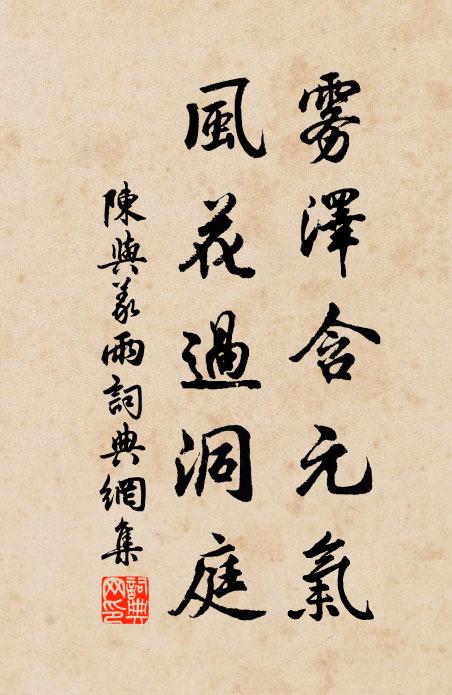 雾澤含元氣
風花過洞庭
陳與義雨詞典網集
詞典網印